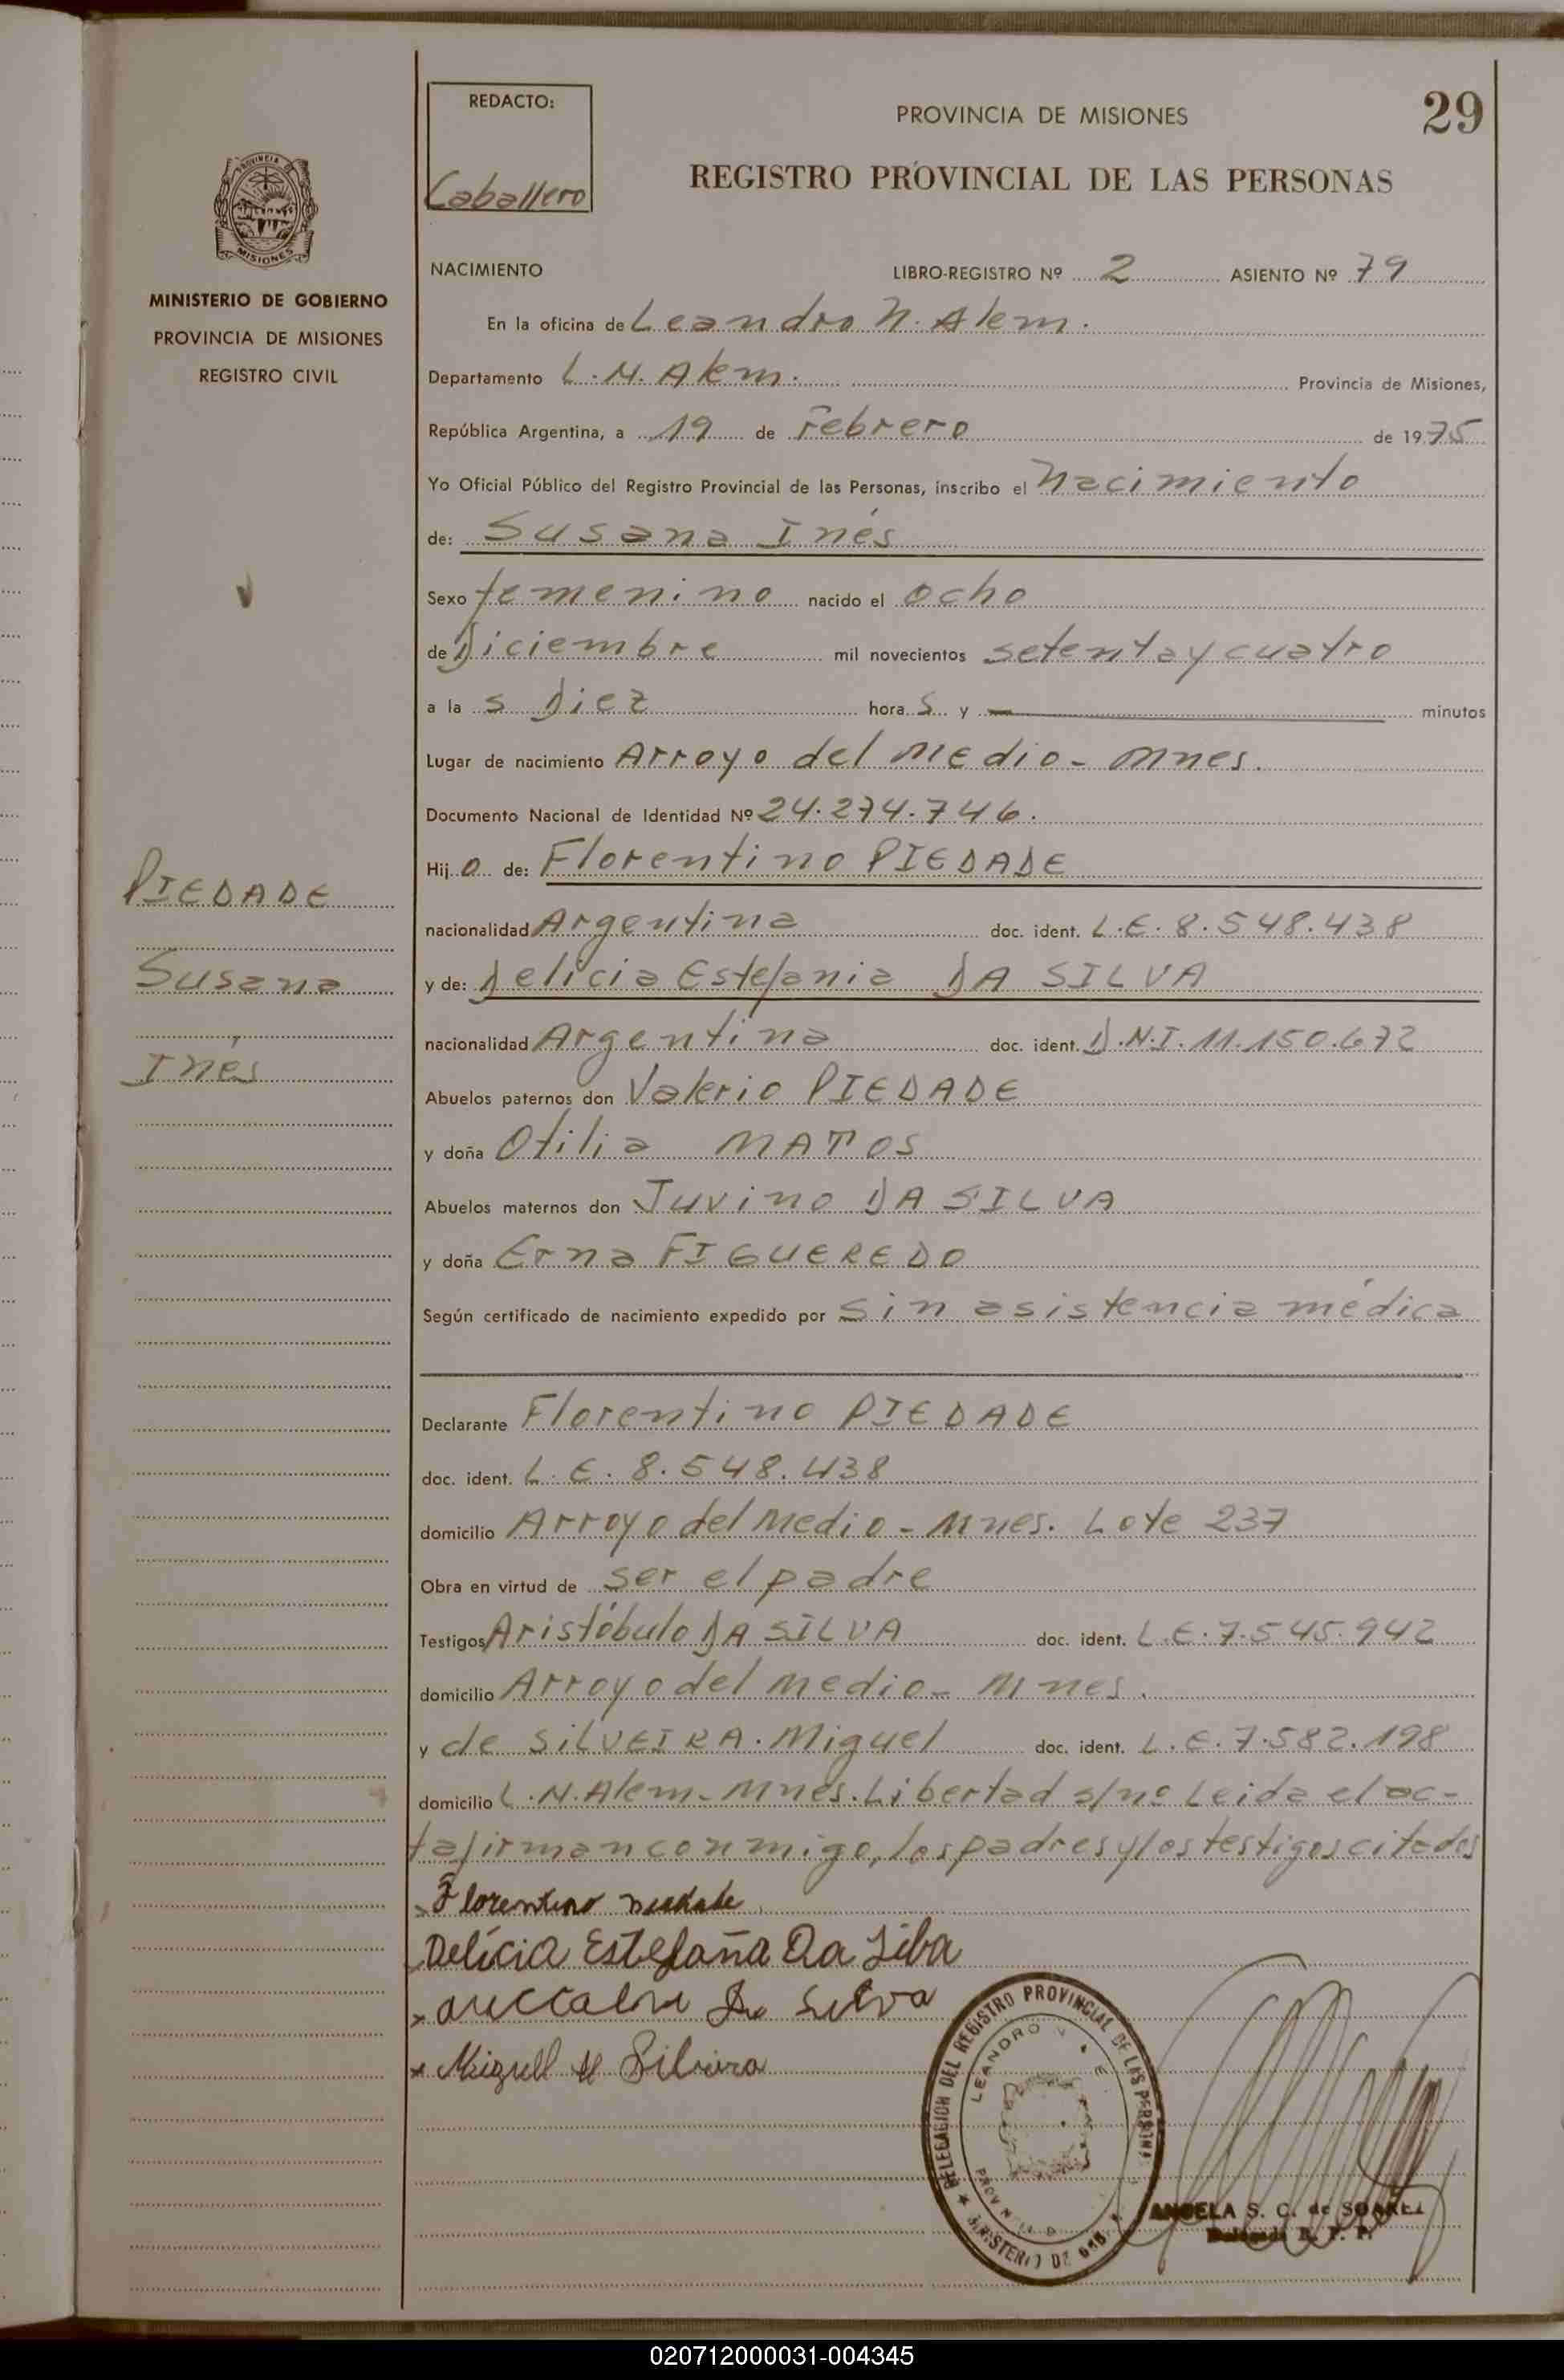 29
REDACTO:
Caballero
PROVINCIA DE MISIONES
REGISTRO PROVINCIAL DE LAS PERSONAS
PROVINCIA
MISIONES
MINISTERIO DE GOBIERNO
PROVINCIA DE MISIONES
REGISTRO CIVIL
NACIMIENTO LIBRO-REGISTRO Nº 2 ASIENTO Nº 79
En la oficina de Leandro N. Alem.
Departamento L.N. Alem. Provincia de Misiones,
República Argentina, a 19 de Febrero de 1975
Yo Oficial Público del Registro Provincial de las Personas, inscribo el Nacimiento
de: Susana Inés
Sexo femenino nacido el ocho
de Diciembre mil novecientos setenta y cuatro
a la s Diez hora s y — minutos
Lugar de nacimiento Arroyo del Medio - Mnes.
Documento Nacional de Identidad Nº 24.274.746.
Hij o de: Florentino PIEDADE
PIEDADE
nacionalidad Argentina doc. ident. L.E. 8.548.438
Susana
y de: Delicia Estefania DA SILVA
nacionalidad Argentina doc. ident. D.N.I. 11.150.672
Inés
Abuelos paternos don Valerio PIEDADE
y doña Otilia MATTOS
Abuelos maternos don Juvino DA SILVA
y doña Erna FIGUEREDO
Según certificado de nacimiento expedido por sin asistencia médica
Declarante Florentino PIEDADE
doc. ident. L.E. 8.548.438
domicilio Arroyo del Medio - Mnes. Lote 237
Obra en virtud de ser el padre
Testigos Aristóbulo DA SILVA doc. ident. L.E. 7.545.942
domicilio Arroyo del Medio - Mnes.
y de SILVEIRA. Miguel doc. ident. L.E. 7.582.198
domicilio L.N. Alem - Mnes. Libertad s/nº Leida el ac-
ta firman conmigo, los padres y los testigos citados
Florentino
Delícia Estefaña Da Silba
Da Silva
Miguell de Silveira
DELEGACION DEL REGISTRO PROVINCIAL DE LAS PERSONAS
LEANDRO
MINISTERIO DE GOB.
ANGELA S. C. de SOAREZ
Delegada R. P. P.
020712000031-004345